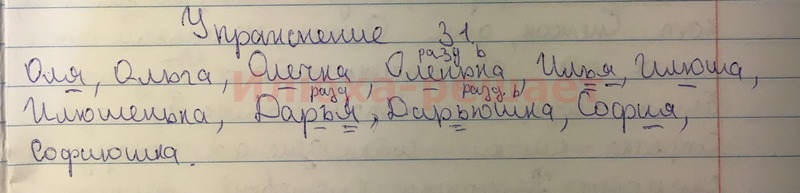 Упражнение 31.
разд ь
Оля, Ольга, Олечка, Оленька, Илья, Илюша,
разд разд ь
Илюшенька, Дарья, Дарьюшка, София,
Софиюшка.